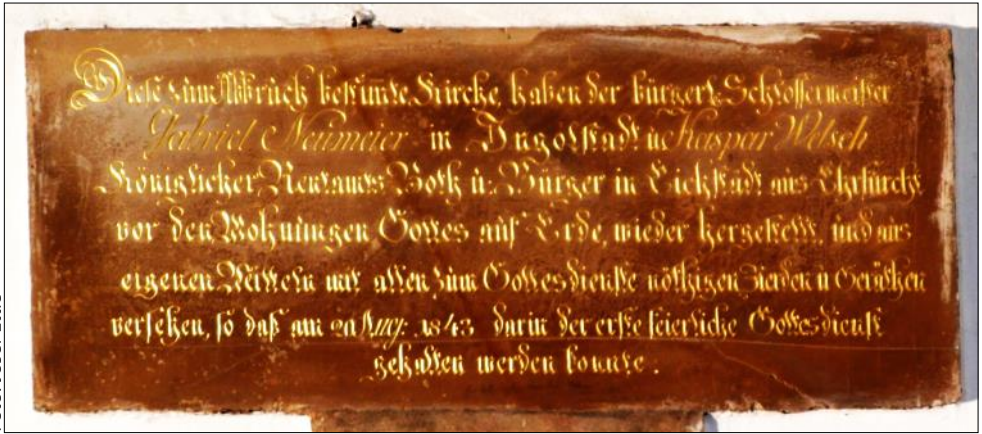 Diese zum Abbruch bestimte Kirche, haben der bürgerl. Schlossermeister
Gabriel Neumeier in Ingolstadt u. Kaspar Welsch
Königlicher Rentamts Both u. Bürger in Eichstädt aus Ehrfurcht
vor den Wohnungen Gottes auf Erde, wieder hergestellt, und aus
eigenen Mitteln mit allen zum Gottesdienste nöthigen Zierden u Geräthen
versehen, so daß am 20 Aug. 1843 darin der erste feierliche Gottesdienst
gehalten werden konnte.